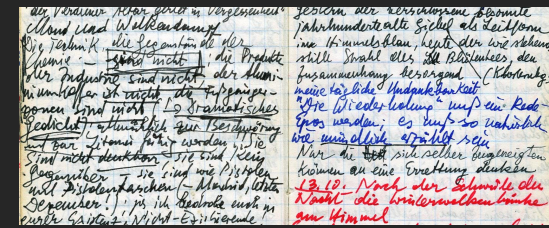 der Verdurner Altar geriet in Vergessenheit"
Mond und Wolkendampf
Die Technik, die Gegenstände der
Chemie – sind nicht, die Produkte
der Industrie sind nicht, der
ist nicht, die
ponen sind nicht (Dramatisches
Gedicht), allmählich zur Beschwörung
und zur Litanei werden: "Sie
sind nicht denkbar, sie sind kein
Gegenüber, sie sind wie Pistolen
und Pistolentaschen" (Madrid, letzter
Dezember) "ja, ich bedrohe euch in
eurer Existenz! Nicht-Existierende!
gestern der zerschossene besonnte
jahrhundertealte Giebel als Leitform
im Himmelsblau, heute der wie stehend
stille Strahl des
Zusammenhang besorgend
meine tägliche Undankbarkeit
"Die Wiederholung" muß ein Rede-
epos werden: es muß so natürlich
wie mündlich erzählt sein
Nur die sich selber zugeneigten
können an eine Errettung denken
13.10. Nach der Schwüle der
Nacht die Winterwolkenbänke
am Himmel